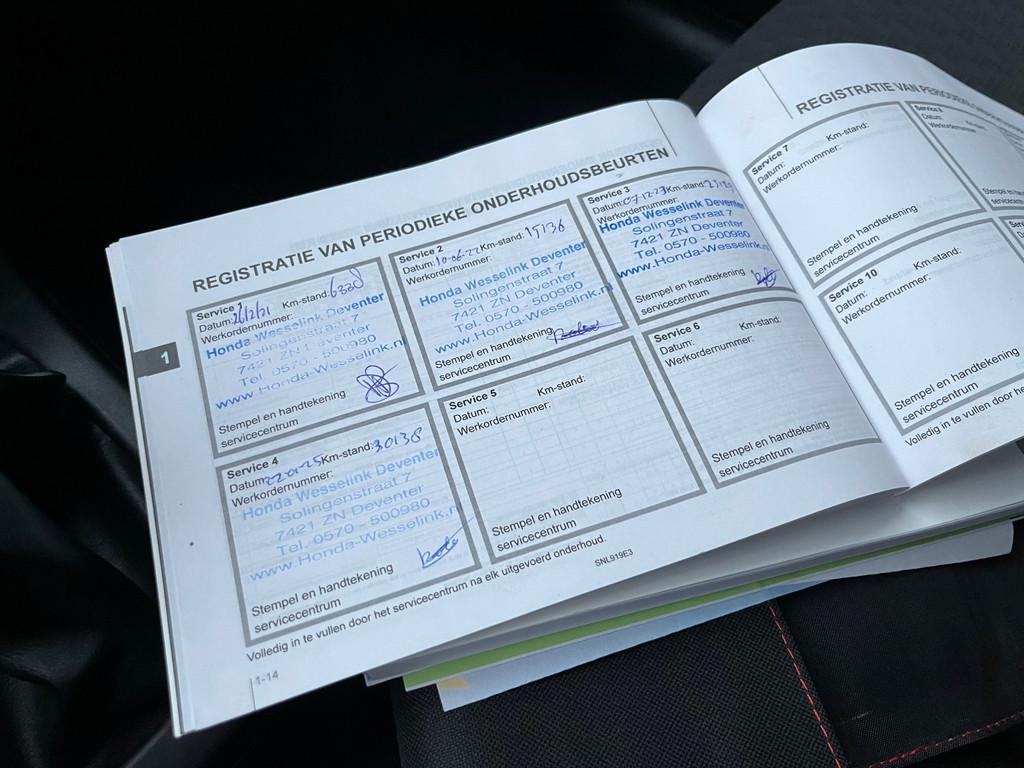 REGISTRATIE VAN PERIODIEKE ONDERHOUDSBEURTEN
Service 1
Datum: Km-stand:
Werkordernummer:
Honda Wesselink Deventer
Solingenstraat 7
7421 ZN Deventer
Tel. 0570 - 500980
www.Honda-Wesselink.nl
Stempel en handtekening
servicecentrum
Service 2
Datum: 10-06-22 Km-stand: 15136
Werkordernummer:
Honda Wesselink Deventer
Solingenstraat 7
7421 ZN Deventer
Tel. 0570 - 500980
www.Honda-Wesselink.nl
Stempel en handtekening
servicecentrum
Service 3
Datum: 07-12-23 Km-stand:
Werkordernummer:
Honda Wesselink Deventer
Solingenstraat 7
7421 ZN Deventer
Tel. 0570 - 500980
www.Honda-Wesselink.nl
Stempel en handtekening
servicecentrum
1
Service 4
Datum: 22-01-25 Km-stand: 30138
Werkordernummer:
Honda Wesselink Deventer
Solingenstraat 7
7421 ZN Deventer
Tel. 0570 - 500980
www.Honda-Wesselink.nl
Stempel en handtekening
servicecentrum
Service 5
Datum: Km-stand:
Werkordernummer:
Stempel en handtekening
servicecentrum
Service 6
Datum: Km-stand:
Werkordernummer:
Stempel en handtekening
servicecentrum
Volledig in te vullen door het servicecentrum na elk uitgevoerd onderhoud.
SNL919E3
1-14
REGISTRATIE VAN PERIODIEKE
Service 7
Datum: Km-stand:
Werkordernummer:
Stempel en handtekening
servicecentrum
Service 8
Datum:
Werkordernummer:
Stempel en
servicecentrum
Service 10
Datum: Km-stand:
Werkordernummer:
Stempel en handtekening
servicecentrum
Volledig in te vullen door he